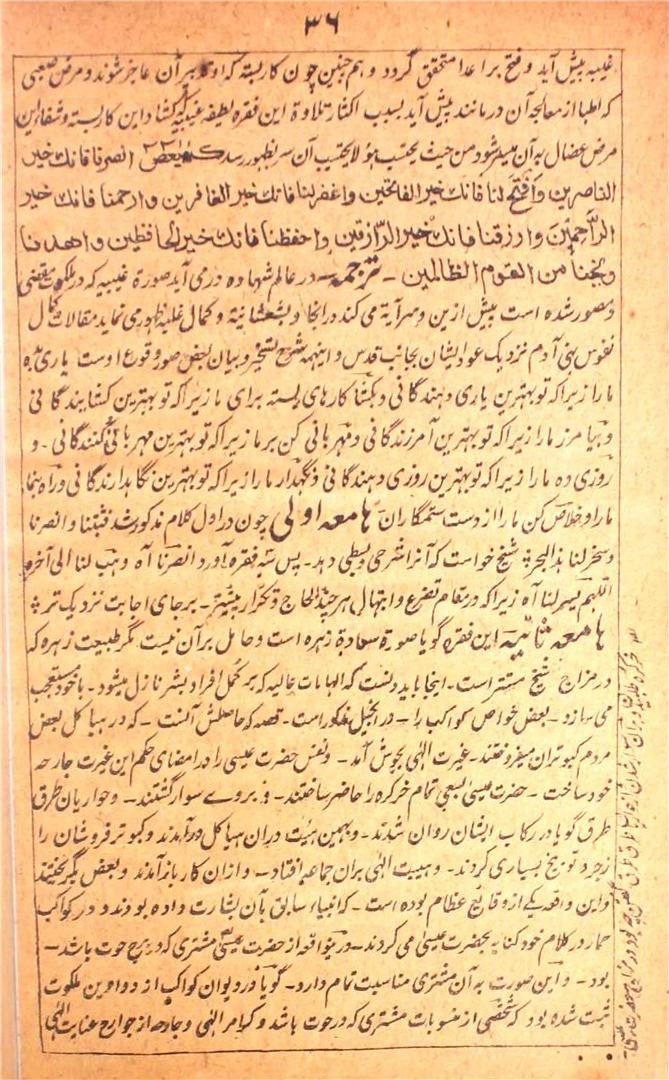 ۳۶
غیبیه پیش آید و فتح بر اعدا متحقق گردد و همچنین چون کار بسته که از تدبیر آن عاجز شوند و مرض صعبی
که اطبا از معالجه آن درمانند پیش آید بسبب اکثار تلاوة این فقره لطیفه غیبیه کشاد این کار بسته و شفاء این
مرض عضال به آن میسر شود من حیث یحتسب او لا یحتسب آن سر بظهور رسد کهیعص انصرنا فانك خیر
الناصرین وافتح لنا فانك خیر الفاتحین واغفر لنا فانك خیر الغافرین وارحمنا فانك خیر
الراحمین وارزقنا فانك خیر الرازقین واحفظنا فانك خیر الحافظین واهدنا
ونجنا من القوم الظالمین ۔ ترجمه ۔ در عالم شهاده درمی آید صورة غیبیه که در ملکوت مقضی
و مصور شده است پیش ازین و مهر آیة می کند در آنجا و بشعشانیة و کمال غلبه ظهور می نماید مقالات کمال
نفوس بنی آدم نزدیک عود ایشان بجانب قدس و اینهمه شرح تسخیر و بیان بعض صور وقوع اوست یاری ده
ما را زیرا که تو بهترین یاری دهندگانی و بکشا کارهای بسته برای ما زیرا که تو بهترین کشایندگانی
و بیامرز ما را زیرا که تو بهترین آمرزندگانی و مهربانی کن بر ما زیرا که تو بهترین مهربانی کنندگانی ۔ و
روزی ده ما را زیرا که تو بهترین روزی دهندگانی و نگهدار ما را زیرا که تو بهترین نگاهدارندگانی و راه بنما
ما را و خلاص کن ما را از دست ستمگاران هامعه اولی چون در اول کلام مذکور شد فثبتنا وانصرنا
وسخر لنا هذا البحر شیخ خواست که آنرا شرحی و بسطی دهد ۔ پس سه فقره آورد انصرنا آه وهب لنا الی آخره
اللهم یسر لنا آه زیرا که در مقام تضرع و ابتهال هر چند الحاح و تکرار بیشتر ۔ بر جای اجابت نزدیک تر
هامعه ثانیه این فقره گویا صورة سعادة زهره است و حامل بر آن نیست مگر طبیعت زهره که
در مزاج شیخ مستتر است ۔ اینجا باید دانست که الهامات عالیه که بر کمل افراد بشر نازل میشود ۔ با خود مستصحب
می سازد ۔ بعض خواص کواکب را ۔ در انجیل مذکور است ۔ قصه که حاصلش آنست ۔ که در هیاکل بعض
مردم کبوتران میفروختند ۔ غیرت الهی بجوش آمد ۔ و نفس حضرت عیسی را در امضای حکم این غیرت جارحه
خود ساخت ۔ حضرت عیسی بسعی تمام خر کره را حاضر ساختند ۔ و بروے سوار گشتند ۔ و حواریان طرق
طرق گویا در رکاب ایشان روان شدند ۔ و بهمین هیئت دران هیاکل درآمدند و کبوتر فروشان را
زجر و توبیخ بسیاری کردند ۔ و هیبت الهی بران جماعه افتاد ۔ و ازان کار باز آمدند و بعض بگریختند
و این واقعه یکے از وقائع عظام بوده است ۔ که انبیاء سابق بآن بشارت داده بودند و در کواکب
حمار در کلام خود کنایه بحضرت عیسیٰ می کردند ۔ درین واقعه از حضرت عیسی مشتری که در برج حوت باشد ۔
بود ۔ و این صورت به آن مشتری مناسبت تمام دارد ۔ گویا در دیوان کواکب از دواوین ملکوت
ثبت شده بود که شخصی از منسوبات مشتری که در حوت باشد و کیا مر الهی و جارحه از جوارح عنایت الهی